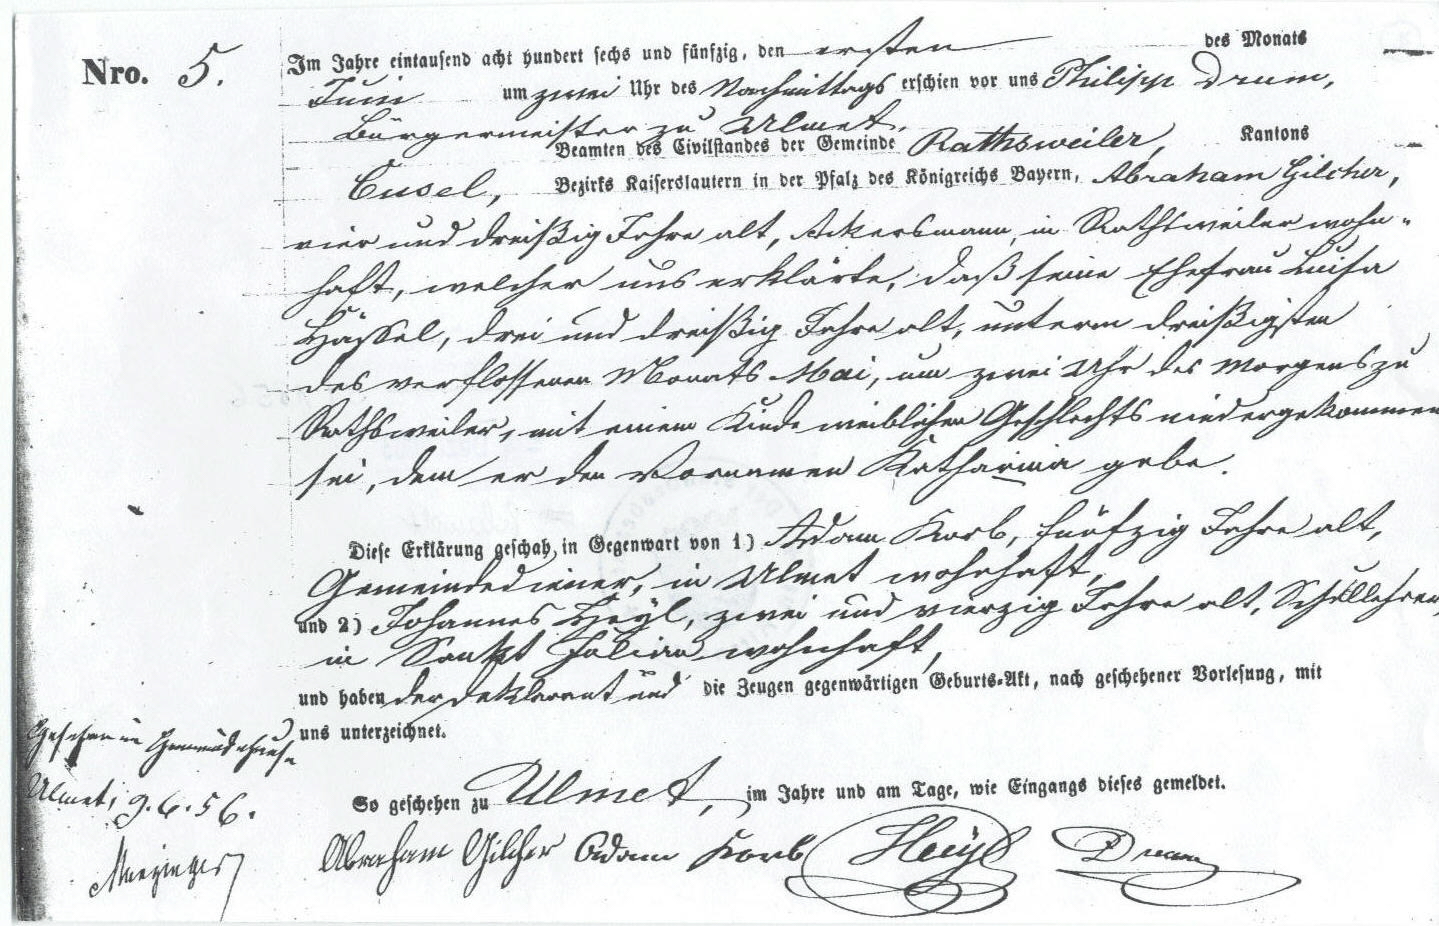 Nro. 5.
Im Jahre eintausend acht hundert sechs und fünfzig, den ersten des Monats
Juni um zwei Uhr des Nachmittags erschien vor uns Philipp Drum,
Bürgermeister zu Ulmet,
Beamten des Civilstandes der Gemeinde Rathsweiler, Kantons
Cusel, Bezirks Kaiserslautern in der Pfalz des Königreichs Bayern, Abraham Gilcher,
vier und dreißig Jahre alt, Ackersmann, in Rathsweiler wohn-
haft, welcher uns erklärte, daß seine Ehefrau Luisa
Hässel, drei und dreißig Jahre alt, unterm dreißigsten
des verflossenen Monats Mai, um zwei Uhr des Morgens zu
Rathsweiler, mit einem Kinde weiblichen Geschlechts niedergekommen
sei, dem er den Vornamen Katharina gebe.
Diese Erklärung geschah, in Gegenwart von 1) Adam Korb, fünfzig Jahre alt,
Gemeindediener, in Ulmet wohnhaft,
und 2) Johannes Heyl, zwei und vierzig Jahre alt, Schullehrer,
in Sankt Julian wohnhaft,
und haben der Deklarant und die Zeugen gegenwärtigen Geburts-Akt, nach geschehener Vorlesung, mit
uns unterzeichnet.
So geschehen zu Ulmet, im Jahre und am Tage, wie Eingangs dieses gemeldet.
Abraham Gilcher Adam Korb Heyl Drum
Gesehen im Gemeindehause
Ulmet, 9.6.56.